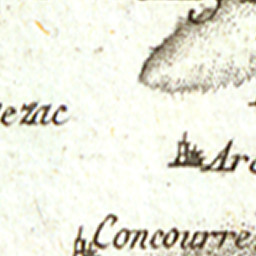 ezac
Arc
Concourre